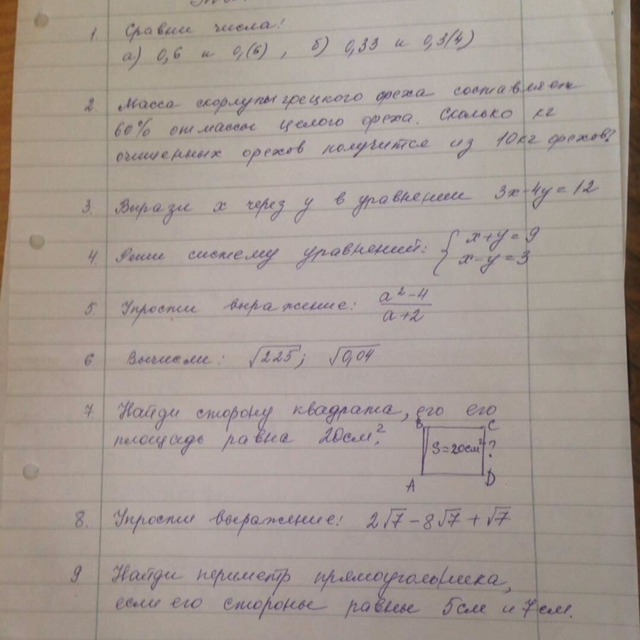 1 Сравни числа:
а) 0,6 и 0,(6) , б) 0,33 и 0,3(4)
2 Масса скорлупы грецкого ореха составляет
60% от массы целого ореха. Сколько кг
очищенных орехов получится из 10 кг орехов?
3. Вырази x через y в уравнении 3x-4y=12
4. Реши систему уравнений: { x+y=9
x-y=3
5. Упрости выражение: a²-4
a+2
6 Вычисли: √225; √0,04
7. Найди сторону квадрата, его его
площадь равна 20см².
B C
S=20см² ?
A D
8. Упрости выражение: 2√7-8√7+√7
9 Найди периметр прямоугольника,
если его стороны равны 5см и 7см.